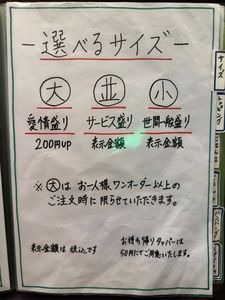 －選べるサイズ－
大 並 小
愛情盛り サービス盛り 世間一般盛り
200円UP 表示金額 表示金額
※大は お一人様ワンオーダー以上の
ご注文時に 限らせていただきます。
表示金額は 税込です
お持ち帰りタッパーは
50円にてご用意いたします。
サイズ